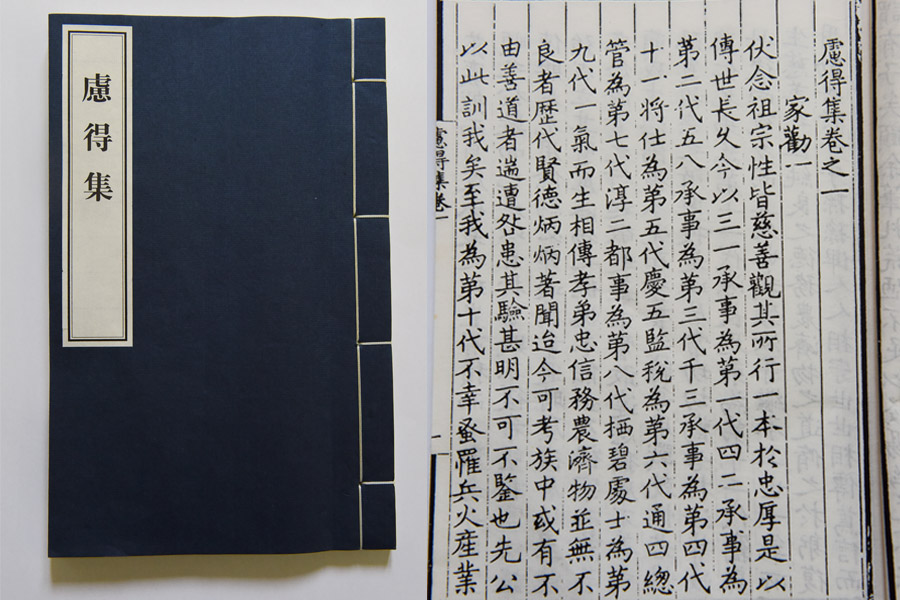 慮得集
慮得集卷之一
家勸一
伏念祖宗性皆慈善觀其所行一本於忠厚是以
傳世長久今以三一承事為第一代四二承事為
第二代五八承事為第三代千三承事為第四代
十一將仕為第五代慶五監稅為第六代通四總
管為第七代淳二都事為第八代栖碧處士為第
九代一氣而生相傳孝弟忠信務農濟物並無不
良者歷代賢德炳炳著聞迨今可考族中或有不
由善道者遄遭咎患其驗甚明不可不鑒也先公
以此訓我矣至我為第十代不幸蚤罹兵火産業
慮得集卷一
一